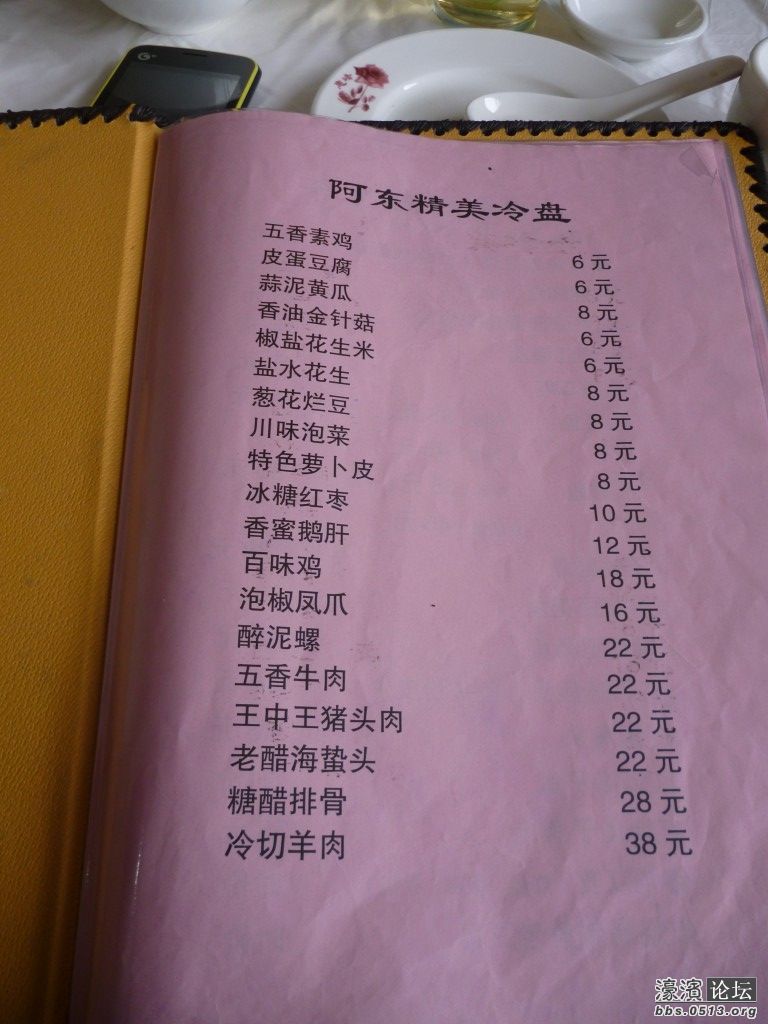 阿东精美冷盘
五香素鸡 6元
皮蛋豆腐 6元
蒜泥黄瓜 8元
香油金针菇 6元
椒盐花生米 6元
盐水花生 8元
葱花烂豆 8元
川味泡菜 8元
特色萝卜皮 8元
冰糖红枣 10元
香蜜鹅肝 12元
百味鸡 18元
泡椒凤爪 16元
醉泥螺 22元
五香牛肉 22元
王中王猪头肉 22元
老醋海蛰头 22元
糖醋排骨 28元
冷切羊肉 38元
濠滨论坛
bbs.0513.org